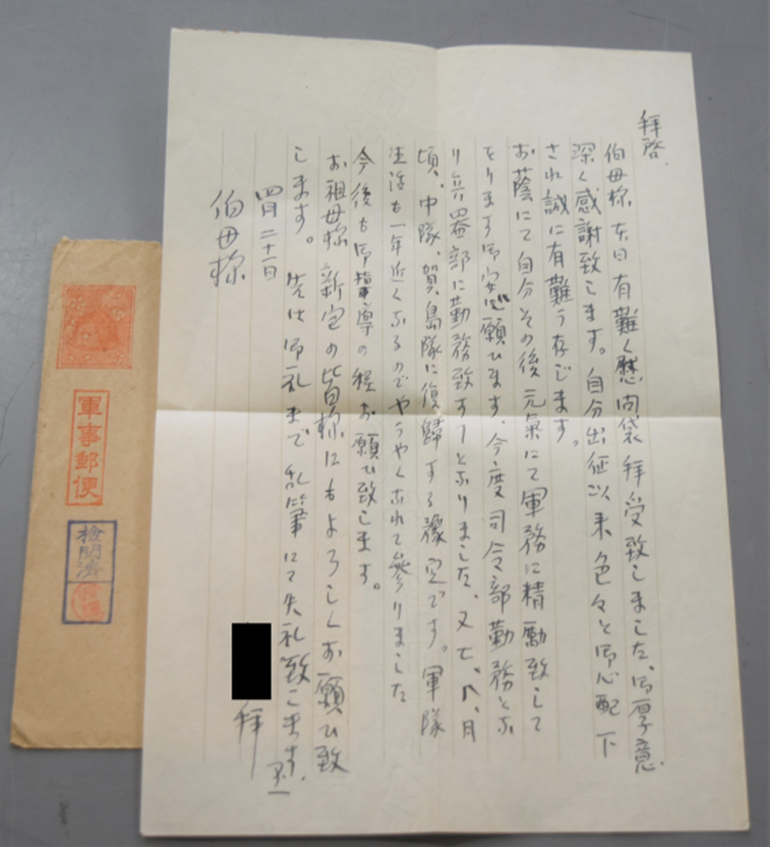 拝啓
伯母様 本日有難く慰問袋拝受致しました、御厚意
深く感謝致します。自分出征以来色々と御心配下
され誠に有難う存じます。
お蔭にて自分その後元氣にて軍務に精励致して
をります御安心願ひます、今度司令部勤務とな
り兵器部に勤務致すことになりました、又七、八、月
頃、中隊、賀島隊に復歸する豫定です。軍隊
生活も一年近くなるのでやうやくなれて参りました
今後も御指導の程お願ひ致します。
お祖母様 新宅の皆様にもよろしくお願ひ致
します。先は御礼まで乱筆にて失礼致します
四月二十一日
拝
伯母様
軍事郵便
検閲済